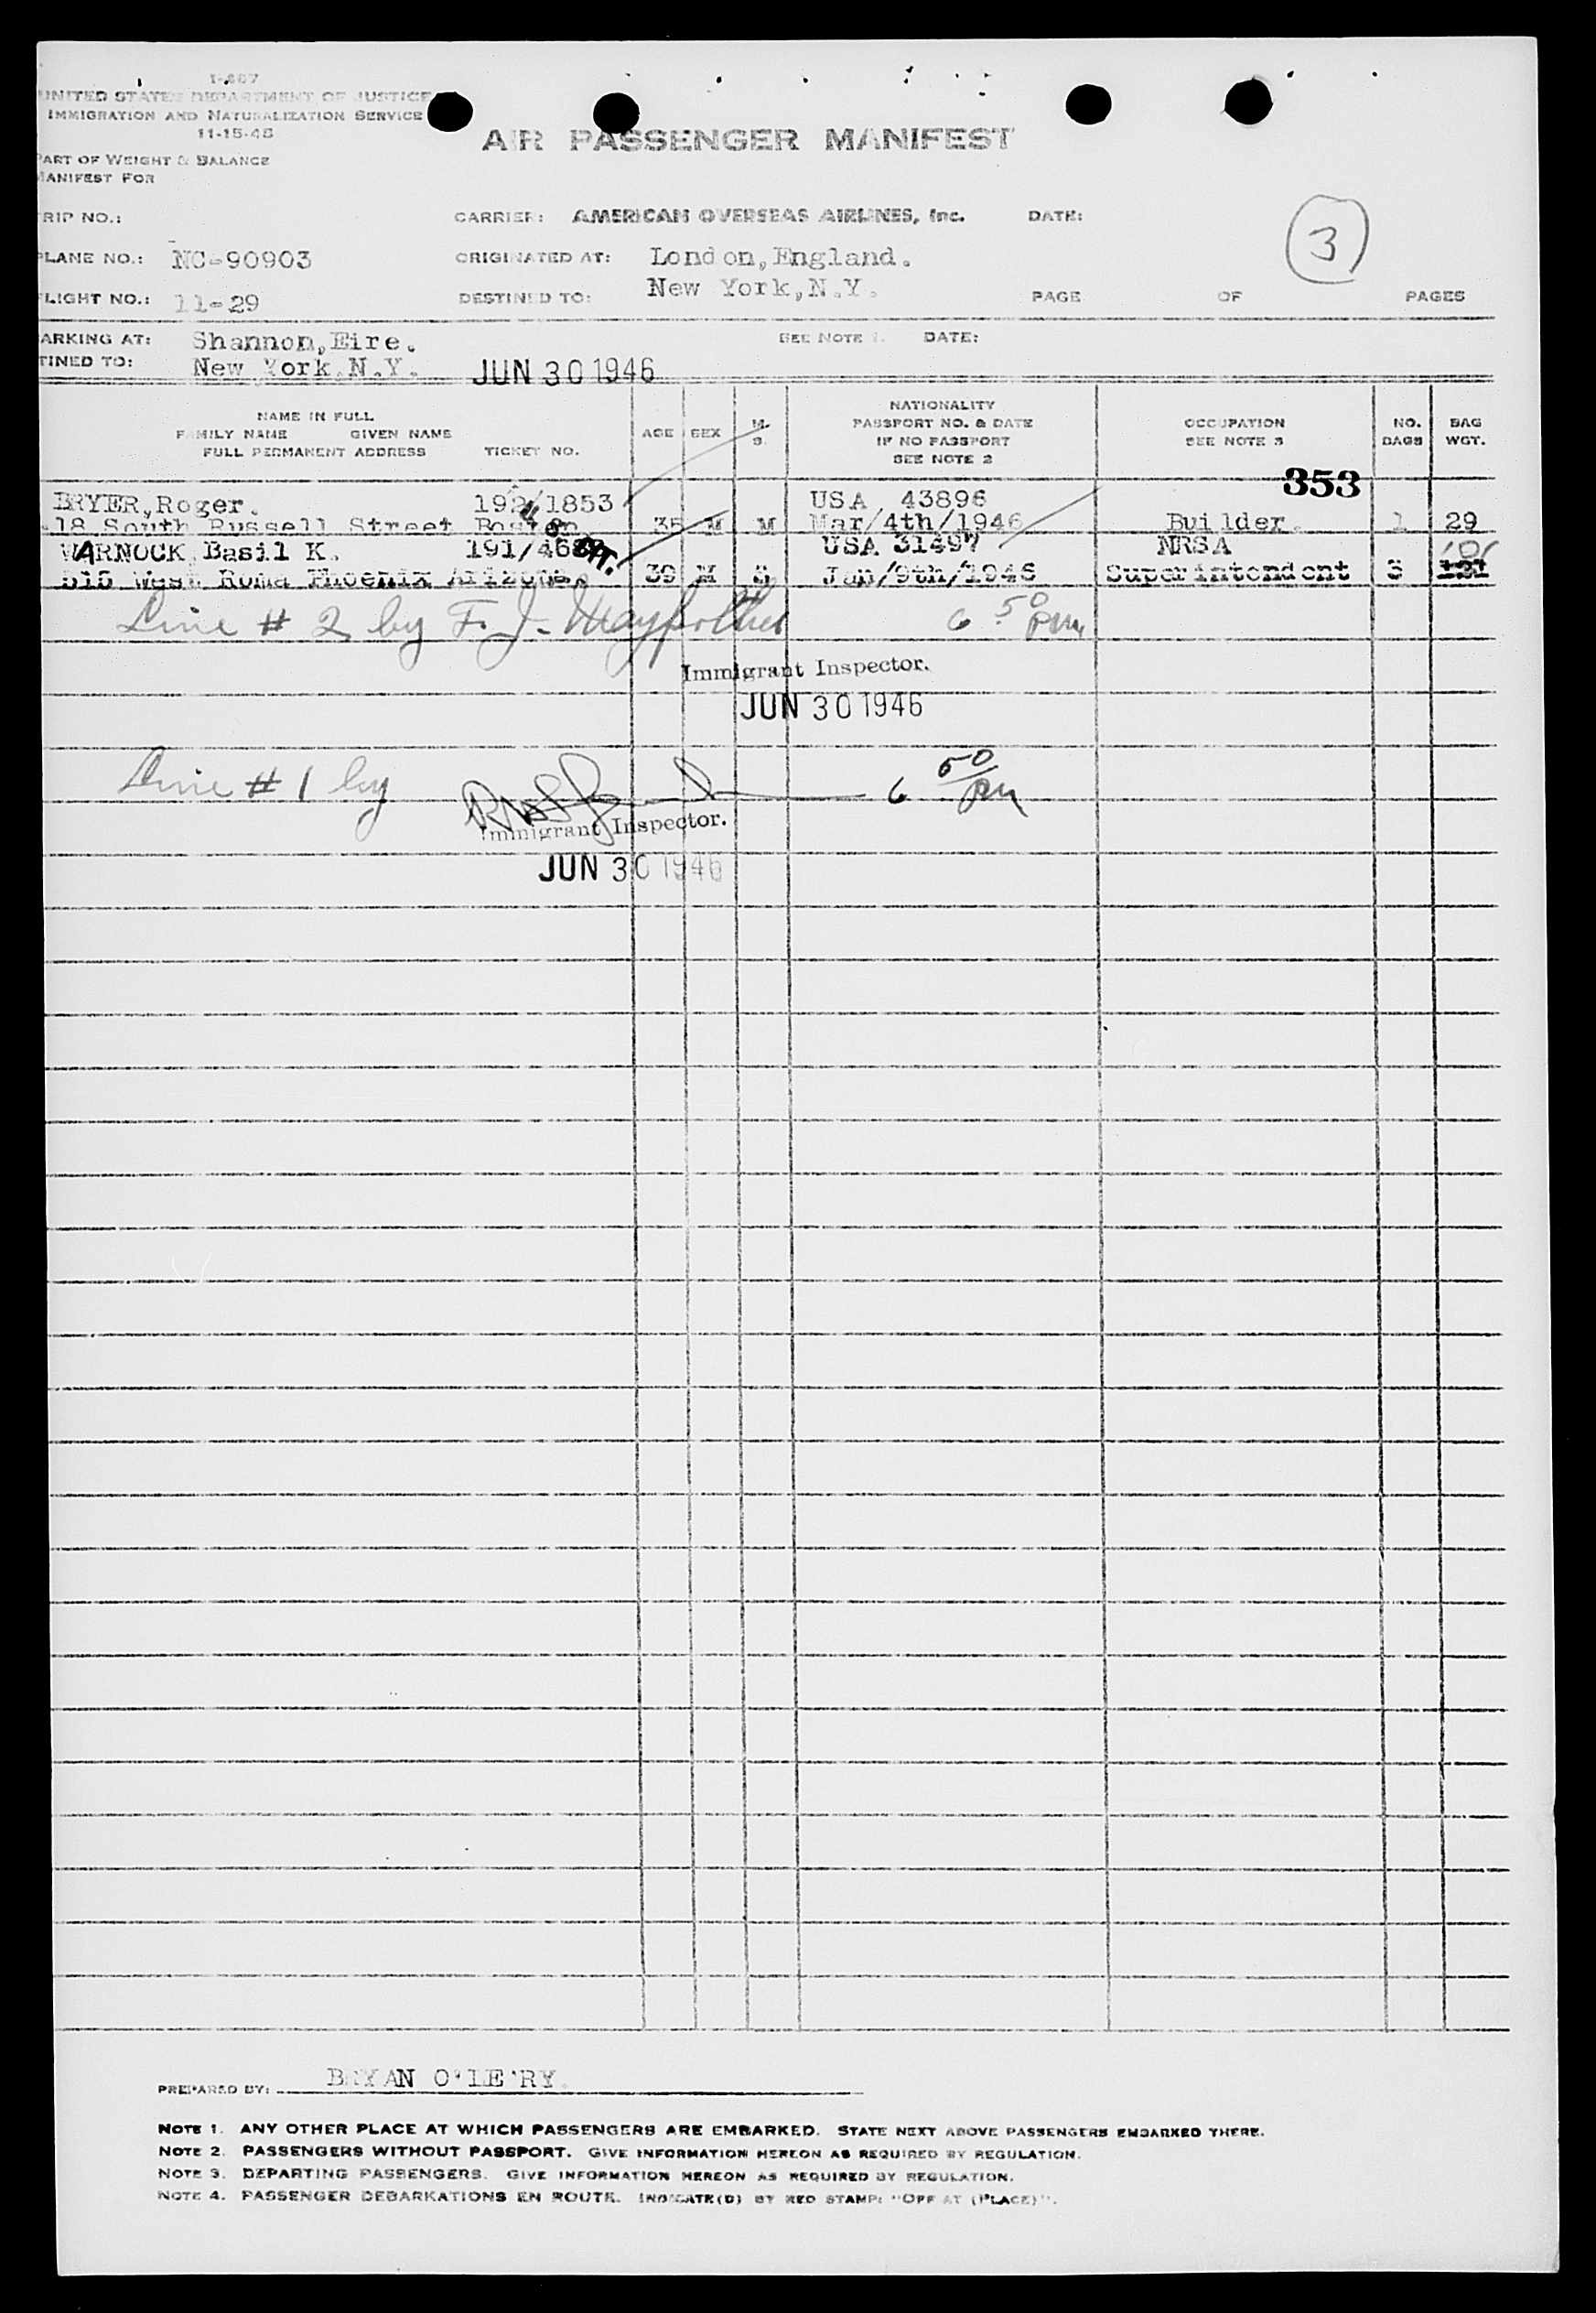 I-467
UNITED STATES DEPARTMENT OF JUSTICE
IMMIGRATION AND NATURALIZATION SERVICE
11-15-45
PART OF WEIGHT & BALANCE
MANIFEST FOR
AIR PASSENGER MANIFEST
RIP NO.: CARRIER: AMERICAN OVERSEAS AIRLINES, Inc. DATE:
3
PLANE NO.: NC-90903 ORIGINATED AT: London, England.
FLIGHT NO.: 11-29 DESTINED TO: New York, N.Y. PAGE OF PAGES
ARKING AT: Shannon, Eire. SEE NOTE 1. DATE:
TINED TO: New York, N.Y. JUN 30 1946
NAME IN FULL
FAMILY NAME GIVEN NAME
FULL PERMANENT ADDRESS TICKET NO. AGE SEX M. S. NATIONALITY PASSPORT NO. & DATE IF NO PASSPORT SEE NOTE 2 OCCUPATION SEE NOTE 3 NO. BAGS BAG WGT.
353
BRYER, Roger. 192/1853 USA 43896
18 South Russell Street Boston 35 M M Mar/4th/1946 Builder. 1 29
WARNOCK Basil K. 191/46 USA 31497 NRSA 101
515 West Roma Phoenix Arizona. 39 M S Jan/9th/1946 Superintendent 3
Line # 2 by F. J. 6 50 pm
Immigrant Inspector.
JUN 30 1946
Line # 1 by 6 50 pm
Immigrant Inspector.
JUN 30 1946
PREPARED BY: BRYAN O'LE'RY.
NOTE 1. ANY OTHER PLACE AT WHICH PASSENGERS ARE EMBARKED. STATE NEXT ABOVE PASSENGERS EMBARKED THERE.
NOTE 2. PASSENGERS WITHOUT PASSPORT. GIVE INFORMATION HEREON AS REQUIRED BY REGULATION.
NOTE 3. DEPARTING PASSENGERS. GIVE INFORMATION HEREON AS REQUIRED BY REGULATION.
NOTE 4. PASSENGER DEBARKATIONS EN ROUTE. INDICATE(D) BY RED STAMP: "OFF AT (PLACE)".